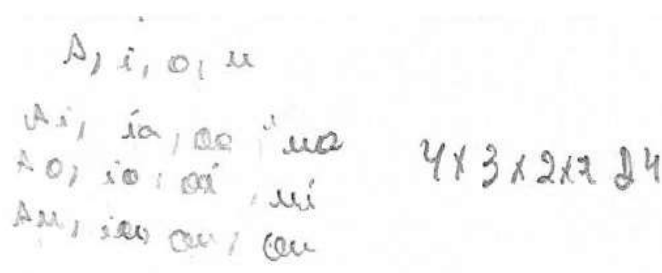 A, i, o, u
Ai, ia, oa, ua
Ao, io, oi, ui
Au, iu, ou, ou
4 x 3 x 2 x 1 24